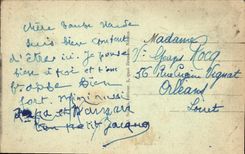 chère Tante
suis bien content
d'être ici. Je pense
bien à toi et t'em
brasse bien
fort. mimi aussi
Papa et Maman
ton petit Jacques
Madame
Vve Georges Hocq
56 Rue Eugène Vignat
Orléans
Loiret